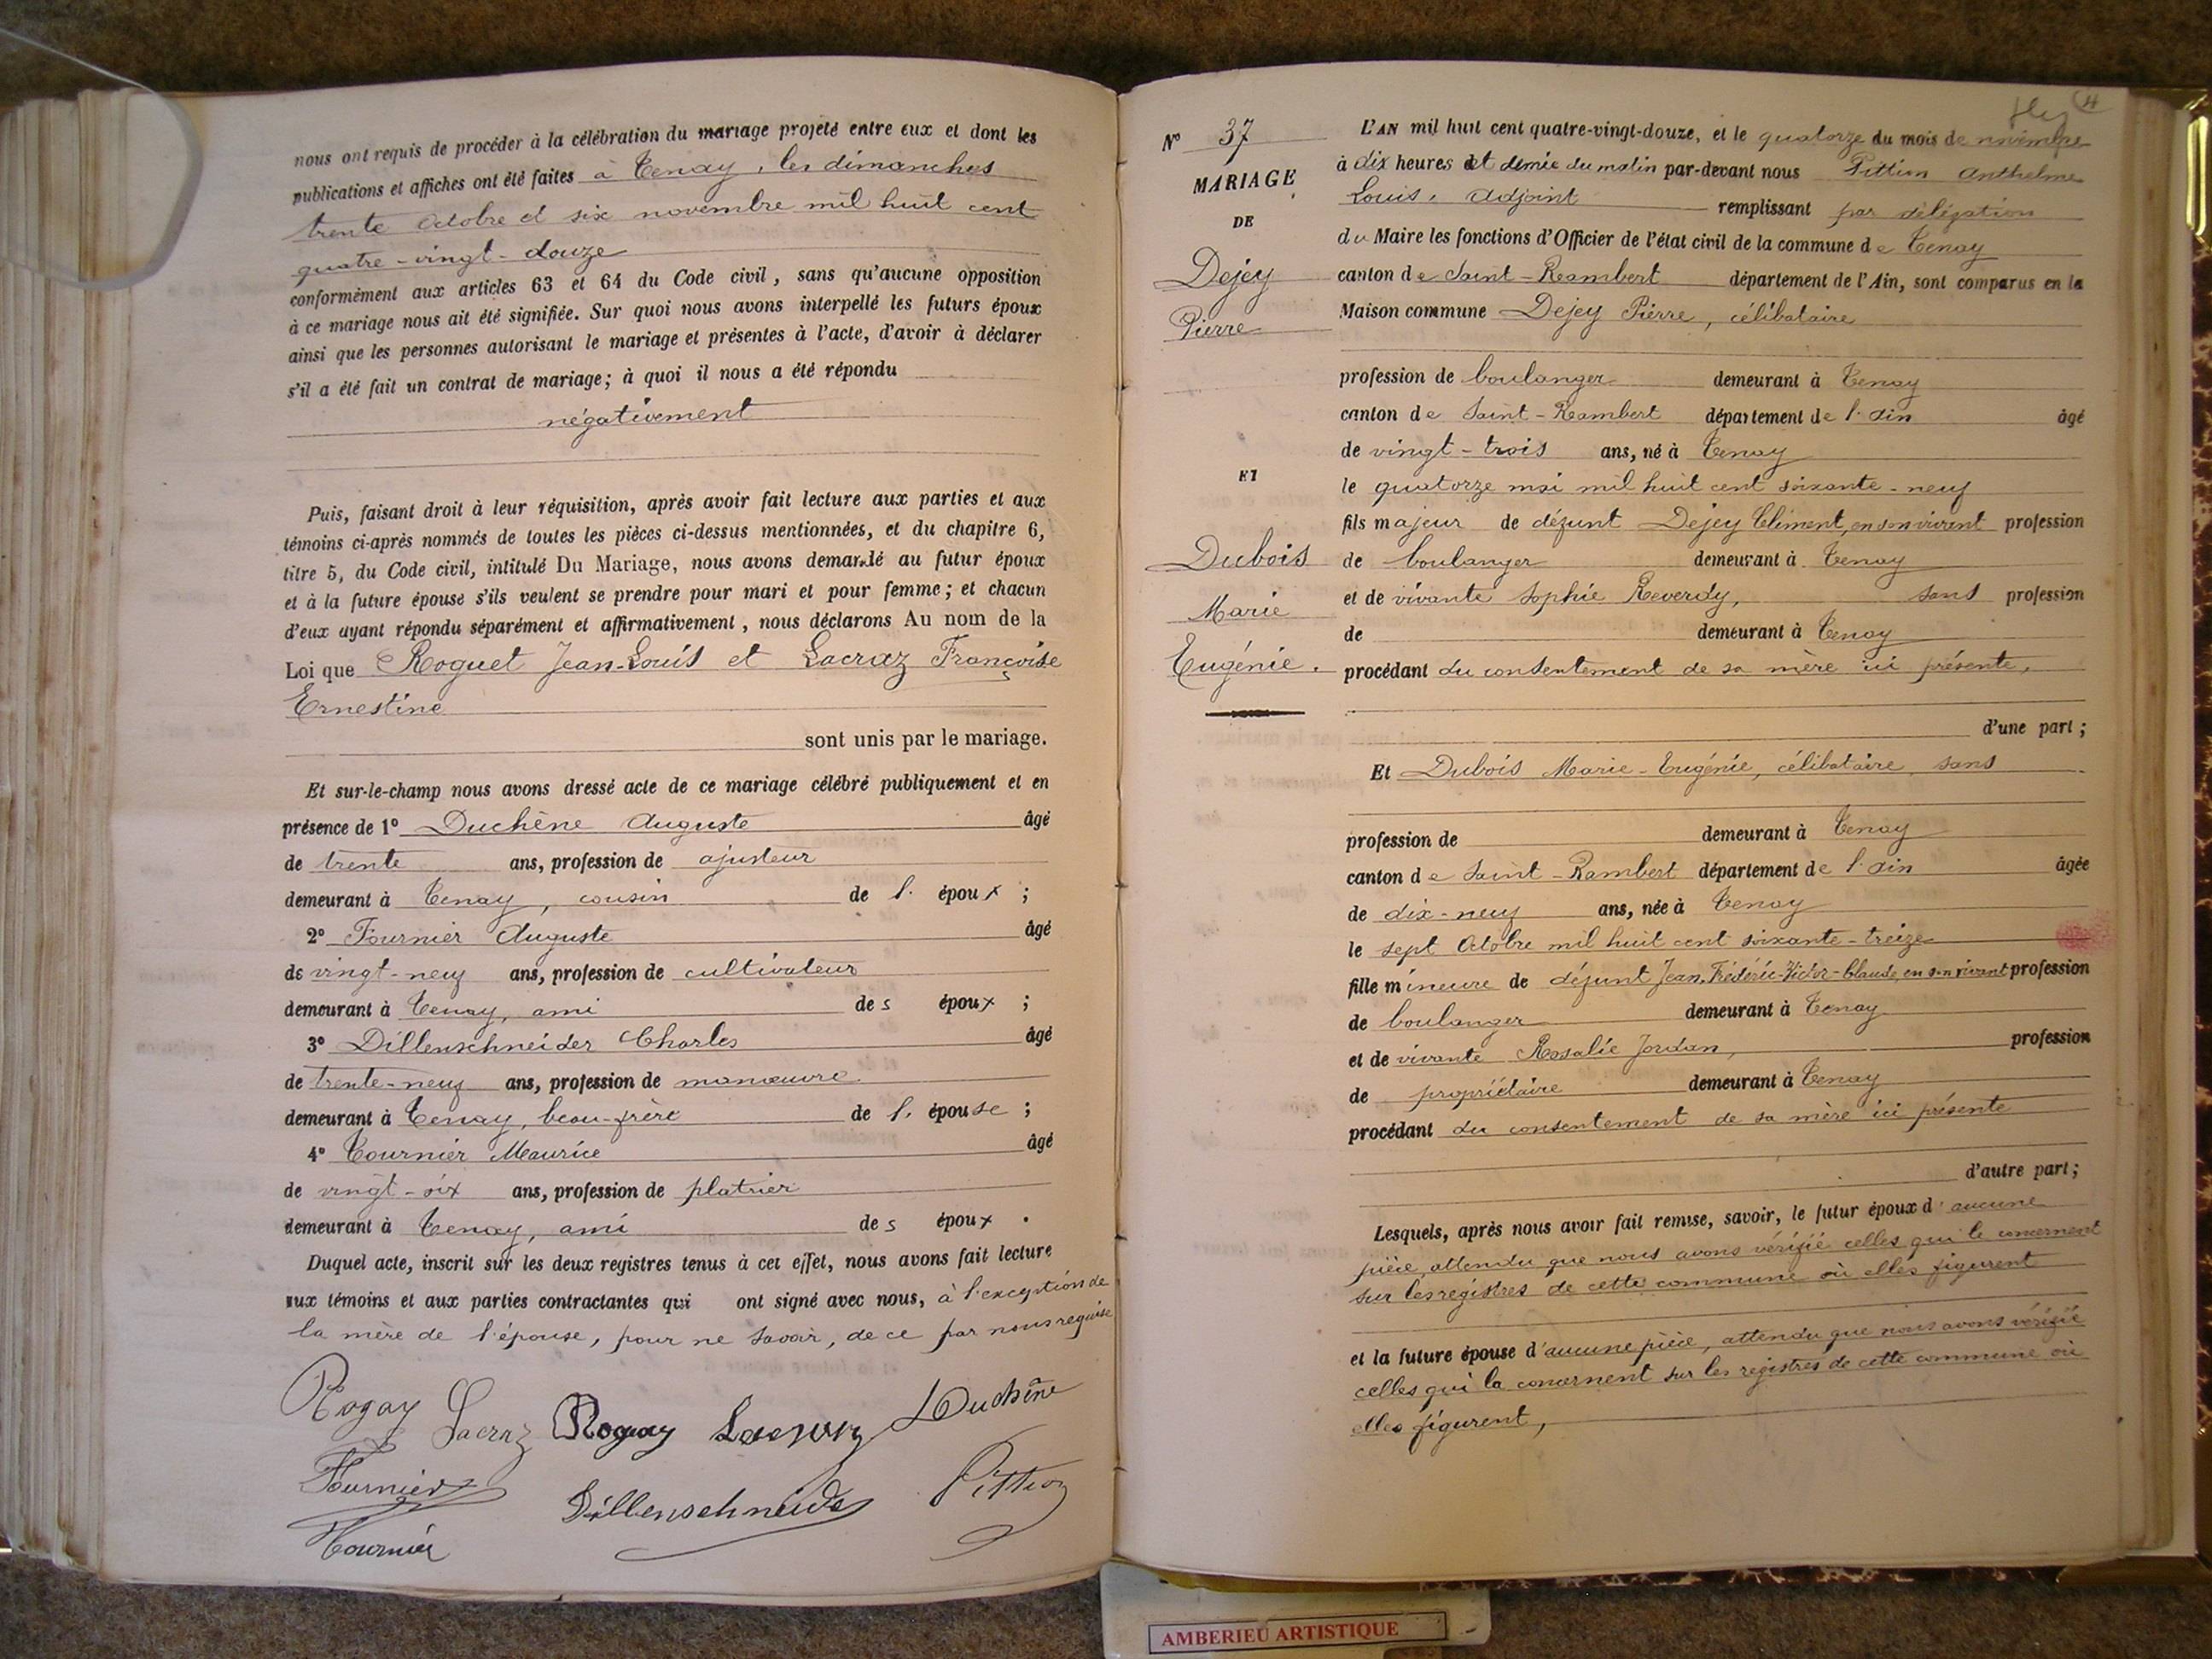 nous ont requis de procéder à la célébration du mariage projeté entre eux et dont les
publications et affiches ont été faites à Tenay, les dimanches
trente Octobre et six novembre mil huit cent
quatre-vingt-douze
conformément aux articles 63 et 64 du Code civil, sans qu'aucune opposition
à ce mariage nous ait été signifiée. Sur quoi nous avons interpellé les futurs époux
ainsi que les personnes autorisant le mariage et présentes à l'acte, d'avoir à déclarer
s'il a été fait un contrat de mariage; à quoi il nous a été répondu
négativement
Puis, faisant droit à leur réquisition, après avoir fait lecture aux parties et aux
témoins ci-après nommés de toutes les pièces ci-dessus mentionnées, et du chapitre 6,
titre 5, du Code civil, intitulé Du Mariage, nous avons demandé au futur époux
et à la future épouse s'ils veulent se prendre pour mari et pour femme; et chacun
d'eux ayant répondu séparément et affirmativement, nous déclarons Au nom de la
Loi que Roguet Jean-Louis et Lacraz Françoise
Ernestine
sont unis par le mariage.
Et sur-le-champ nous avons dressé acte de ce mariage célébré publiquement et en
présence de 1° Duchêne Auguste âgé
de trente ans, profession de ajusteur
demeurant à Tenay, cousin de l' époux ;
2° Fournier Auguste âgé
de vingt-neuf ans, profession de cultivateur
demeurant à Tenay, ami des époux ;
3° Dillenschneider Charles âgé
de trente-neuf ans, profession de manœuvre
demeurant à Tenay, beau-frère de l' épouse ;
4° Tournier Maurice âgé
de vingt-six ans, profession de platrier
demeurant à Tenay, ami des époux .
Duquel acte, inscrit sur les deux registres tenus à cet effet, nous avons fait lecture
aux témoins et aux parties contractantes qui ont signé avec nous, à l'exception de
la mère de l'épouse, pour ne savoir, de ce par nous requise
Rogay Lacraz Rogay Duchêne
Fournier Dillenschneider Pittion
Tournier
N° 37
MARIAGE
DE
Dejey
Pierre
ET
Dubois
Marie
Eugénie.
L'AN mil huit cent quatre-vingt-douze, et le quatorze du mois de novembre
à dix heures et demie du matin par-devant nous Pittion Anthelme
Louis, Adjoint remplissant par délégation
du Maire les fonctions d'Officier de l'état civil de la commune de Tenay
canton de Saint-Rambert département de l'Ain, sont comparus en la
Maison commune Dejey Pierre, célibataire
profession de boulanger demeurant à Tenay
canton de Saint-Rambert département de l'Ain âgé
de vingt-trois ans, né à Tenay
le quatorze mai mil huit cent soixante-neuf
fils majeur de défunt Dejey Clément, en son vivant profession
de boulanger demeurant à Tenay
et de vivante Sophie Reverdy, sans profession
de demeurant à Tenay
procédant du consentement de sa mère ici présente,
d'une part ;
Et Dubois Marie-Eugénie, célibataire, sans
profession de demeurant à Tenay
canton de Saint-Rambert département de l'Ain âgée
de dix-neuf ans, née à Tenay
le sept Octobre mil huit cent soixante-treize
fille mineure de défunt Jean-Frédéric-Victor-Claude, en son vivant profession
de boulanger demeurant à Tenay
et de vivante Rosalie Jordan, profession
de propriétaire demeurant à Tenay
procédant du consentement de sa mère ici présente
d'autre part ;
Lesquels, après nous avoir fait remise, savoir, le futur époux d'aucune
pièce, attendu que nous avons vérifié celles qui le concernent
sur les registres de cette commune où elles figurent
et la future épouse d'aucune pièce, attendu que nous avons vérifié
celles qui la concernent sur les registres de cette commune où
elles figurent,
AMBERIEU ARTISTIQUE